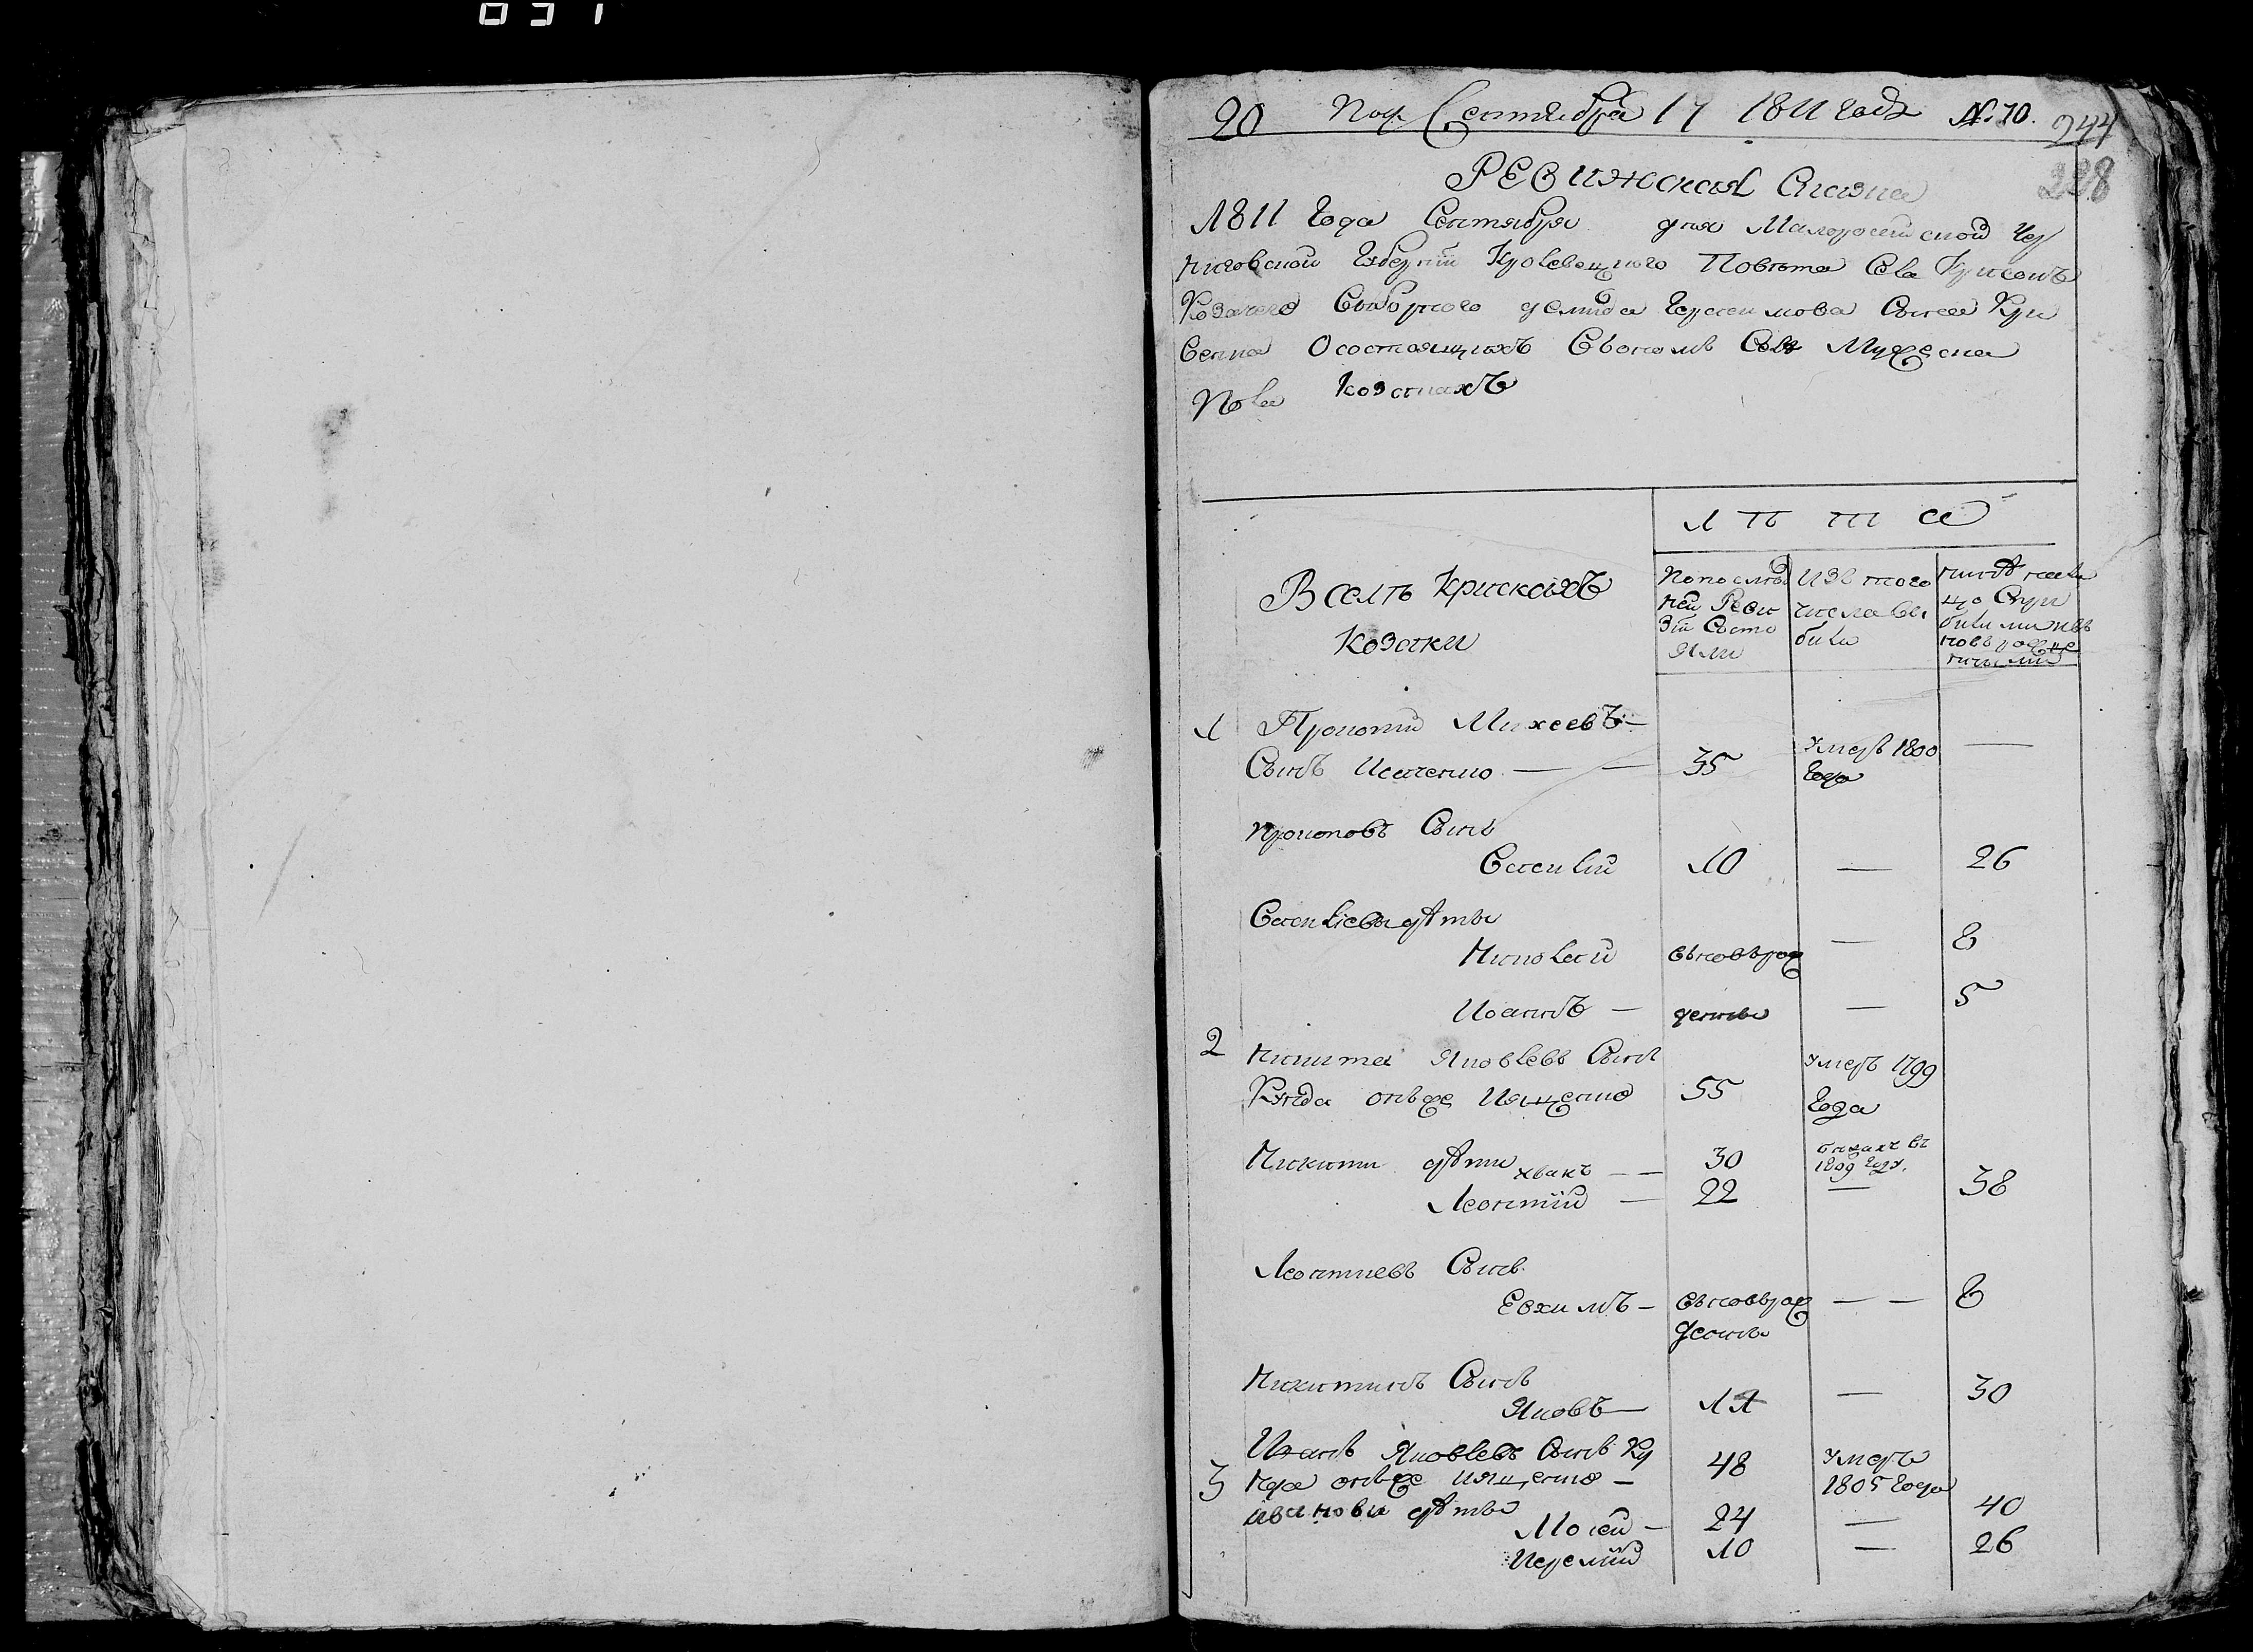 031
20 Пол. Сентября 17 1811 года №. 70. 244
228
РЕВИЖСКАЯ Сказка
1811 Года Сентября дня Малоросийской Чер
ниговской Губернии Кролевецкого Повета Села Крисокъ
Козачего Виборного Демида Герасимова Сына Кри
О состоящихъ Вономъ Селе Мужеска
Пола Козакахъ
Л Ѣ Т А
В селѣ Крискахъ
Козаки
По послѣд
ней Реви
зіи Состо
яли
Изъ того
числа вы
били
ныне на ли
цо Спри
новорожде
1 Прокопій Михеевъ
Сынъ Исаченко — — 35 умеръ 1800 Года —
Прокоповъ Сынъ
Василий 10 — 26
Василиевы дѣты
Николай въновърож — 8
Иоаннъ — денны — 5
2 Никита Яковлевъ Сынъ
Кунда онъже Ищенко 55 умеръ 1799 Года
Никити дѣти Иванъ — — 30 1809 году.
Леонтий — 22 — 38
Леонтиевъ Сынъ
Евхимъ — въновърож — — 8
денны
Никитинъ Сынъ
Яковъ — 14 — 30
3 Иванъ Яковлевъ Сынъ Ку
нда онъже Ищенко — 48 умеръ 1805 Года
Ивановы дѣты
Мосей — 24 — 40
Иеремий 10 — 26